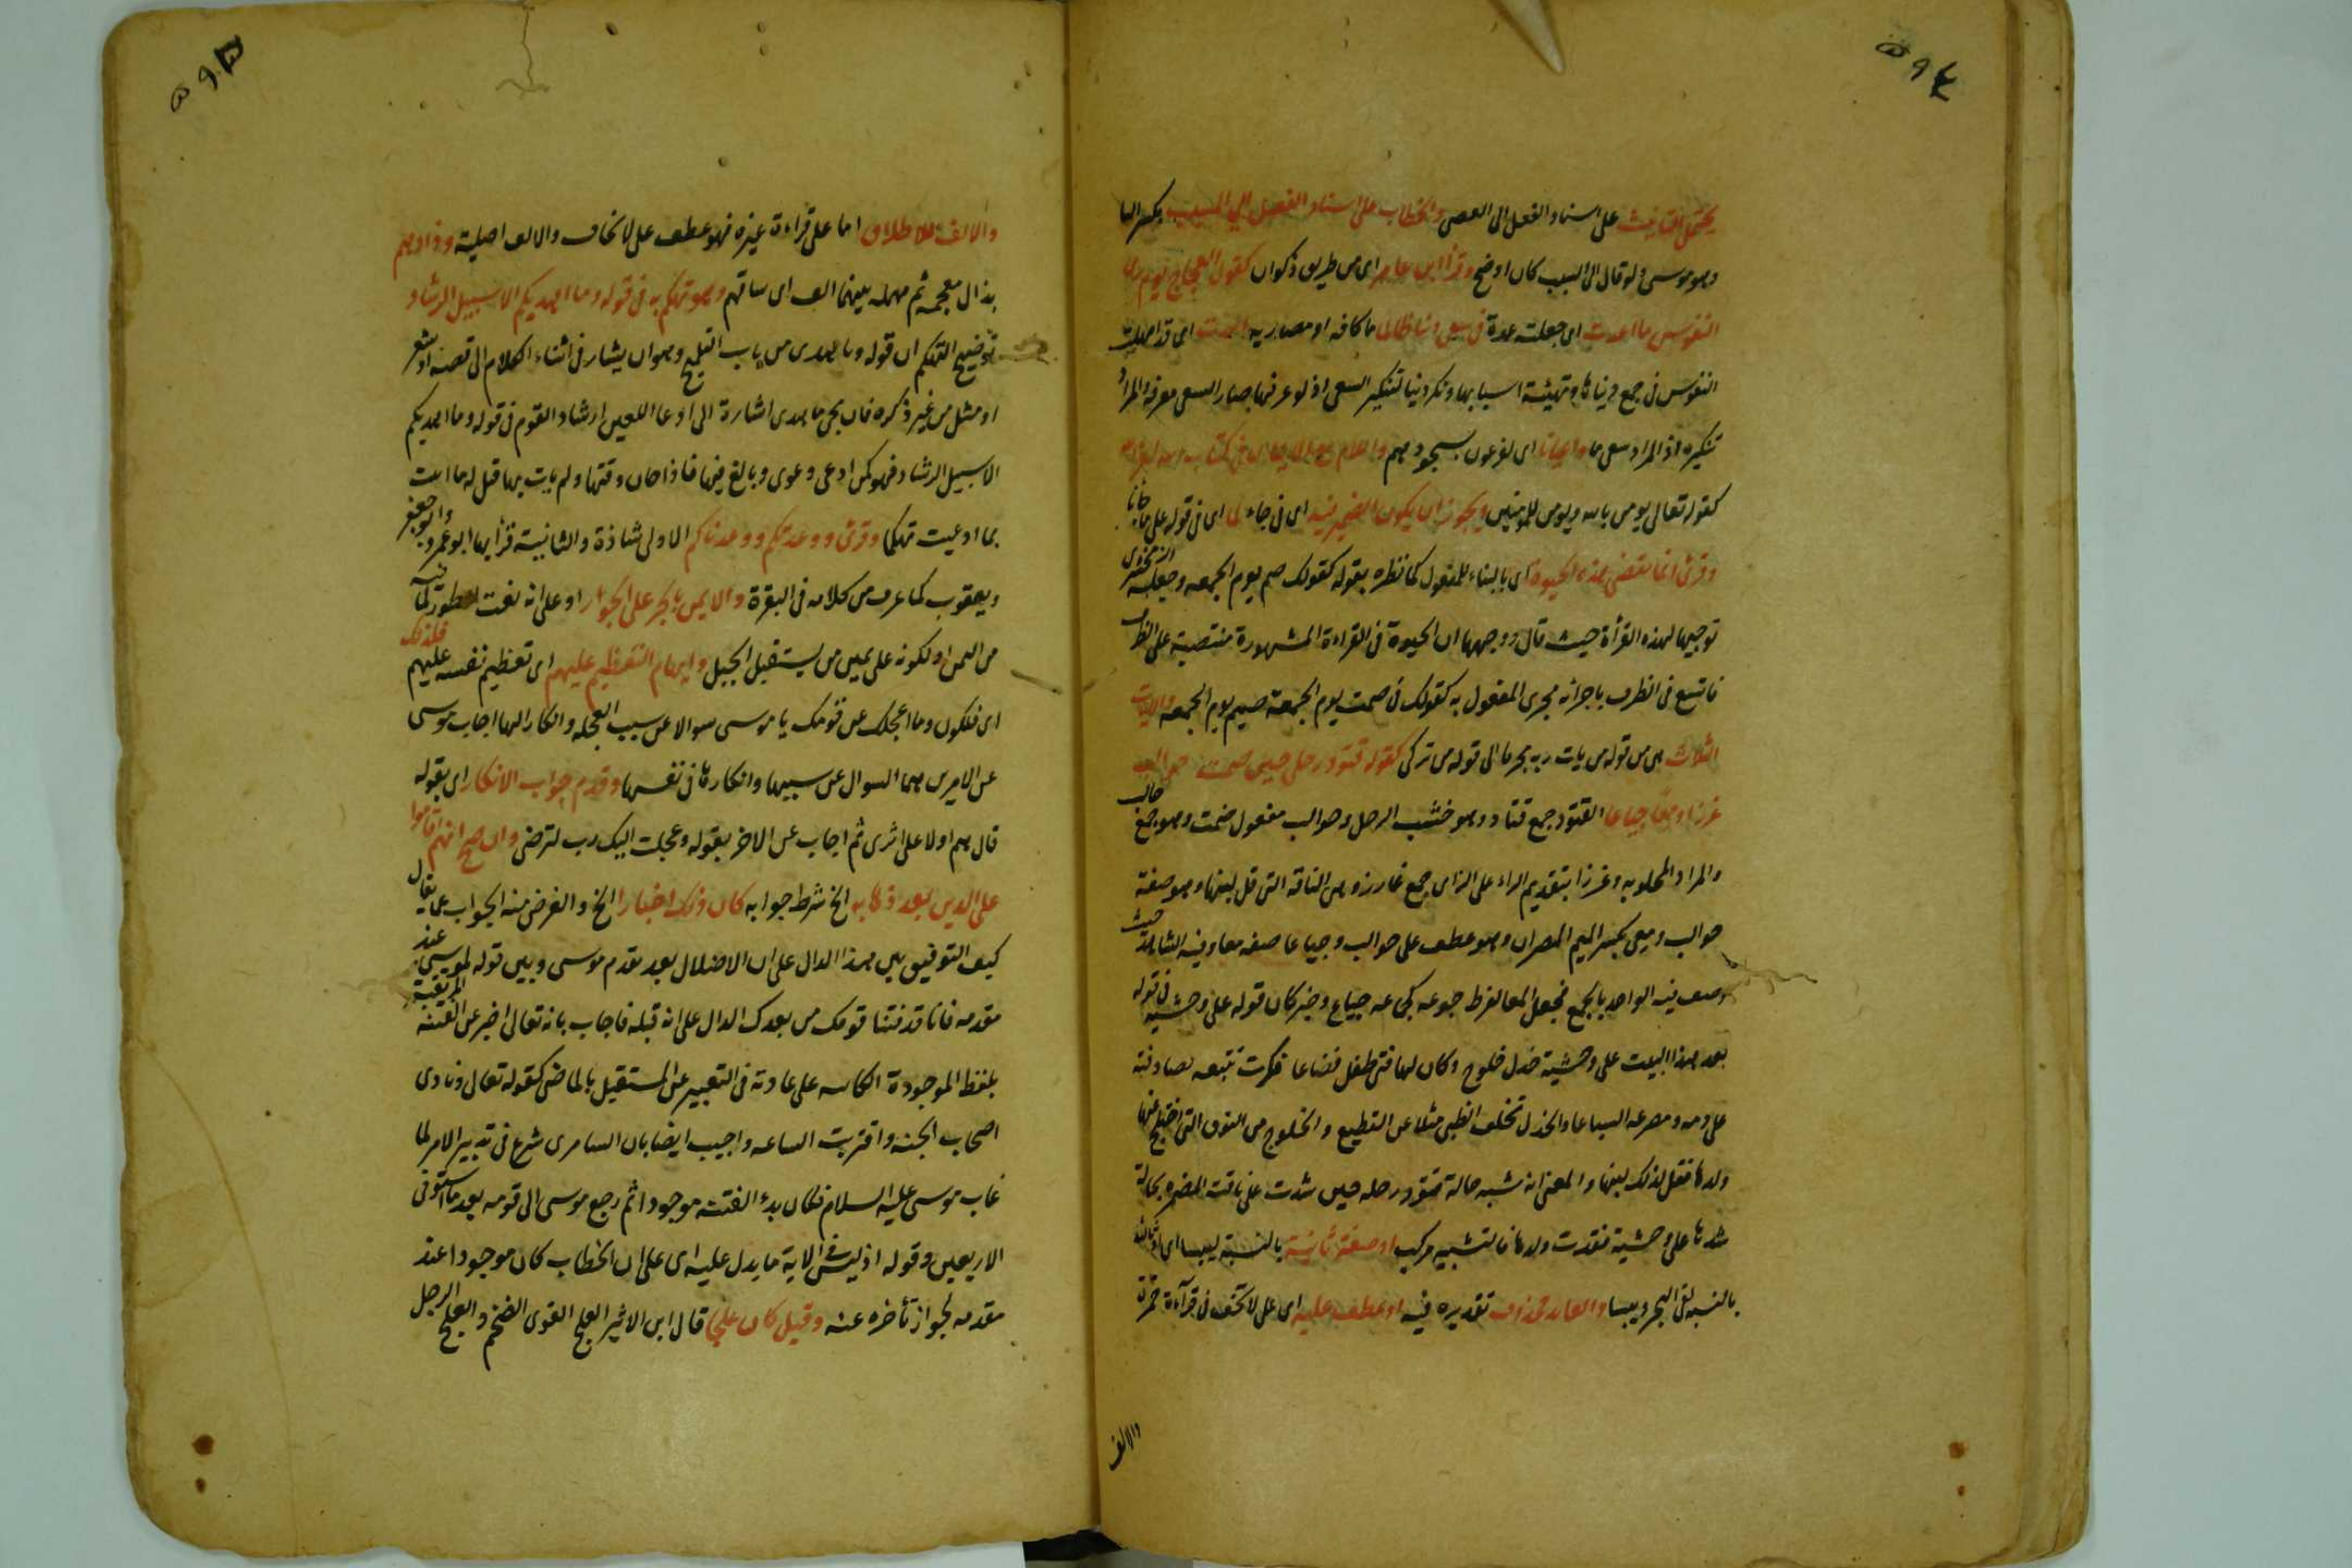 يحتمل التانيث على اسناد الفعل الى العصى والخطاب على اسناد الفعل الى المسبب بكسر البا
وهو موسى ولو قال الى السبب كان اوضح وقرأ ابن عامر اى من طريق ذكوان كقول العجاج يوم ترى
النفوس ما اعدت اى جعلت عدة فى سعى دنيا طالما ما كافه او مصدريه اى قد امهلت
النفوس فى جمع دنياها وتهيئة اسبابها ونكر دنيا لتنكير السعى اذ لو عرفها صار السعى معرفه والمراد
تنكيره اذ المراد سعى ما اى لفرعون بسجودهم واللام مع الايمان فى كتاب الله لغيره
كقوله تعالى يومن بالله ويومن للمومنين ويجوز ان يكون الضمير فيه اى فى جاء لما اى فى قوله على ما جانا
وقرئ انما تقضى هذه الحيوة اى بالبناء للمفعول كما نظره بقوله كقولك صيم يوم الجمعه وجعله الزمخشرى
توجيها لهذه القرأة حيث قال ووجهها ان الحيوة فى القراءة المشهورة منتصبة على الظرف
فاتسع فى الظرف باجرائه مجرى المفعول به كقولك فى صمت يوم الجمعة صيم يوم الجمعه والايات
الثلاث هى من قوله من يات ربه مجرما الى قوله من تزكى كقوله قتود رحلى حين ضمت حوالب
غرزا ومعا جياعا القتود جمع قتاد وهو خشب الرحل وحوالب مفعول ضمت وهو جمع حالب
والمراد المحلوبه وغرزا بتقديم الراء على الزاى جمع غارز وهى الناقة التى قل لبنها وهو صفة
حوالب ومعى بكسر الميم المصران وهو عطف على حوالب وجياعا صفه معا وفيه الشاهد حيث
وصف فيه الواحد بالجمع فجعل المعا لفرط جوعه كجماعه جياع وخبر كان قوله على وحشيه فى قوله
بعد هذا البيت على وحشية خذل خلوج وكان لها فتى طفل فضاعا فكرت تتبعه فصادفته
على دمه ومصرعه السباعا والخذل تخلف الظبى مثلا عن القطيع والخلوج من النوق التى اختلج عنها
ولدها فقل لذلك لبنها والمعنى انه شبه حالة قتود رحله حين شدت على ناقته الضمره بحالة
شدها على وحشية فقدت ولدها فالتشبيه مركب او صفة ثانية بالنسبة ليبسا اى او ثالثه
بالنسبه لفى البحر ويبسا والعائد محذوف تقديره فيه او عطف عليه اى على لا تخف فى قرآءة حمزة
والالف
والالف للاطلاق اما على قراءة غيره فهو عطف على لا تخاف والالف اصلية وذادهم
بذال معجمه ثم مهمله بينهما الف اى ساقهم وهو تهكم به فى قوله وما اهديكم الا سبيل الرشاد
توضيح التهكم ان قوله وما هدى من باب التلميح وهو ان يشار فى اثناء الكلام الى قصه او شعر
او مثل من غير ذكره فان يجى ما هدى اشارة الى ادعا اللعين ارشاد القوم فى قوله وما اهديكم
الا سبيل الرشاد فهو كمن ادعى دعوى وبالغ فيها فاذا حان وقتها ولم يات بها قيل له ما اتيت
بما ادعيت تهكما وقرئ ووعدتكم ووعدناكم الاولى شاذة والثانية قرأ بها ابو عمرو وابو جعفر
ويعقوب كما عرف من كلامه فى البقرة والايمن بالجر على الجوار او على انه نعت للطور لما فيه
من اليمن او لكونه على يمين من يستقبل الجبل وايهام التعظيم عليهم اى تعظيم نفسه عليهم فلذلك
اى فلكون وما اعجلك عن قومك يا موسى سوالا عن سبب العجله وانكارا لها اجاب موسى
عن الامرين هما السوال عن سببها وانكارها فى نفسها وقدم جواب الانكار اى بقوله
قال هم اولاء على اثرى ثم اجاب عن الاخر بقوله وعجلت اليك رب لترضى وان صح انهم اقاموا
على الدين بعد ذهابه الخ شرط جوابه كان ذلك اخبارا الخ والغرض منه الجواب عما يقال
كيف التوفيق بين هذا الدال على ان الاضلال بعد تقدم موسى وبين قوله لموسى عند
مقدمه فانا قد فتنا قومك من بعدك الدال على انه قبله فاجاب بانه تعالى اخبر عن الفتنه المرتقبة
بلفظ الموجودة الكائنه على عادته فى التعبير عن المستقبل بالماضى كقوله تعالى ونادى
اصحاب الجنه واقتربت الساعه واجيب ايضا بان السامرى شرع فى تدبير الامر لما
غاب موسى عليه السلام فكان بدء الفتنه موجودا ثم رجع موسى الى قومه بعد ما استوفى
الاربعين وقوله اذ ليس فى الاية ما يدل عليه اى على ان الخطاب كان موجودا عند
مقدمه لجواز تأخره عنه وقيل كان علجا قال ابن الاثير العلج القوى الضخم والعلج الرجل